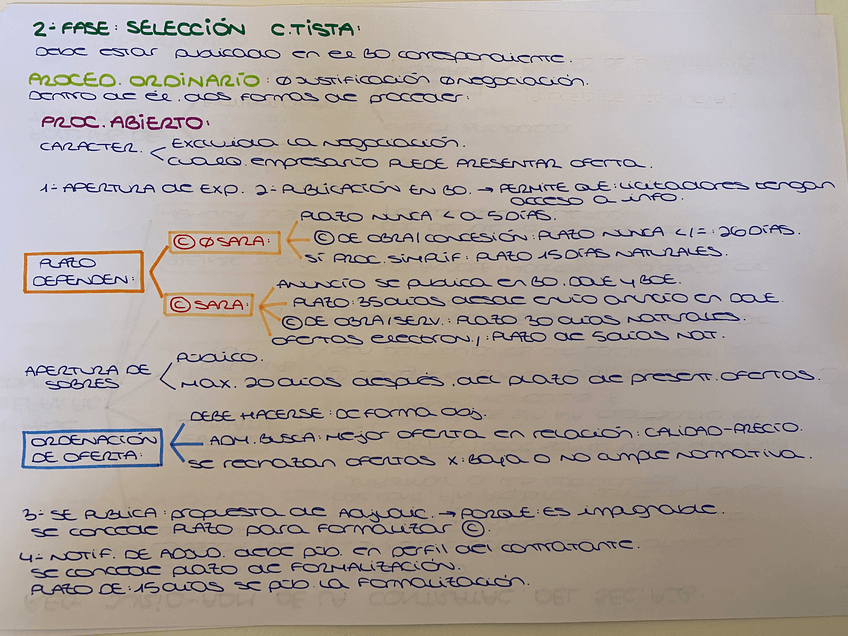 2.- FASE: SELECCIÓN C.TISTA:
DEBE ESTAR PUBLICADO EN EL BO CORRESPONDIENTE.
PROCED. ORDINARIO: Ø JUSTIFICACIÓN Ø NEGOCIACIÓN.
DENTRO DE ÉL. DOS FORMAS DE PROCEDER:
PROC. ABIERTO:
CARACTER. < EXCLUIDA LA NEGOCIACIÓN.
CUALQ. EMPRESARIO PUEDE PRESENTAR OFERTA.
1.- APERTURA DE EXP. 2.- PUBLICACIÓN EN BO. → PERMITE QUE: LICITADORES TENGAN
ACCESO A INFO.
PLAZO NUNCA < A 5 DÍAS.
Ⓒ Ø SARA: Ⓒ DE OBRA/CONCESIÓN: PLAZO NUNCA </=: 26 DÍAS.
SI PROC. SIMPLIF: PLAZO 15 DÍAS NATURALES.
PLAZO
DEPENDEN:
ANUNCIO SE PUBLICA EN BO. DOUE Y BOE.
Ⓒ SARA: PLAZO: 35 DÍAS DESDE ENVIO ANUNCIO EN DOUE.
Ⓒ DE OBRA/SERV.: PLAZO 30 DÍAS NATURALES.
OFERTAS ELECTRON.: PLAZO DE 5 DÍAS NAT.
APERTURA DE
SOBRES
PÚBLICO.
MAX. 20 DÍAS DESPUÉS. DEL PLAZO DE PRESENT. OFERTAS.
ORDENACIÓN
DE OFERTA:
DEBE HACERSE: DE FORMA OBJ.
ADM. BUSCA: MEJOR OFERTA EN RELACIÓN: CALIDAD-PRECIO.
SE RECHAZAN OFERTAS X: BAJA O NO CUMPLE NORMATIVA.
3.- SE PUBLICA: PROPUESTA DE ADJUDIC. → PORQUE: ES IMPUGNABLE.
SE CONCEDE PLAZO PARA FORMALIZAR Ⓒ.
4.- NOTIF. DE ADJUD. DEBE PUB. EN PERFIL DEL CONTRATANTE.
SE CONCEDE PLAZO DE FORMALIZACIÓN.
PLAZO DE: 15 DÍAS SE PUB. LA FORMALIZACIÓN.